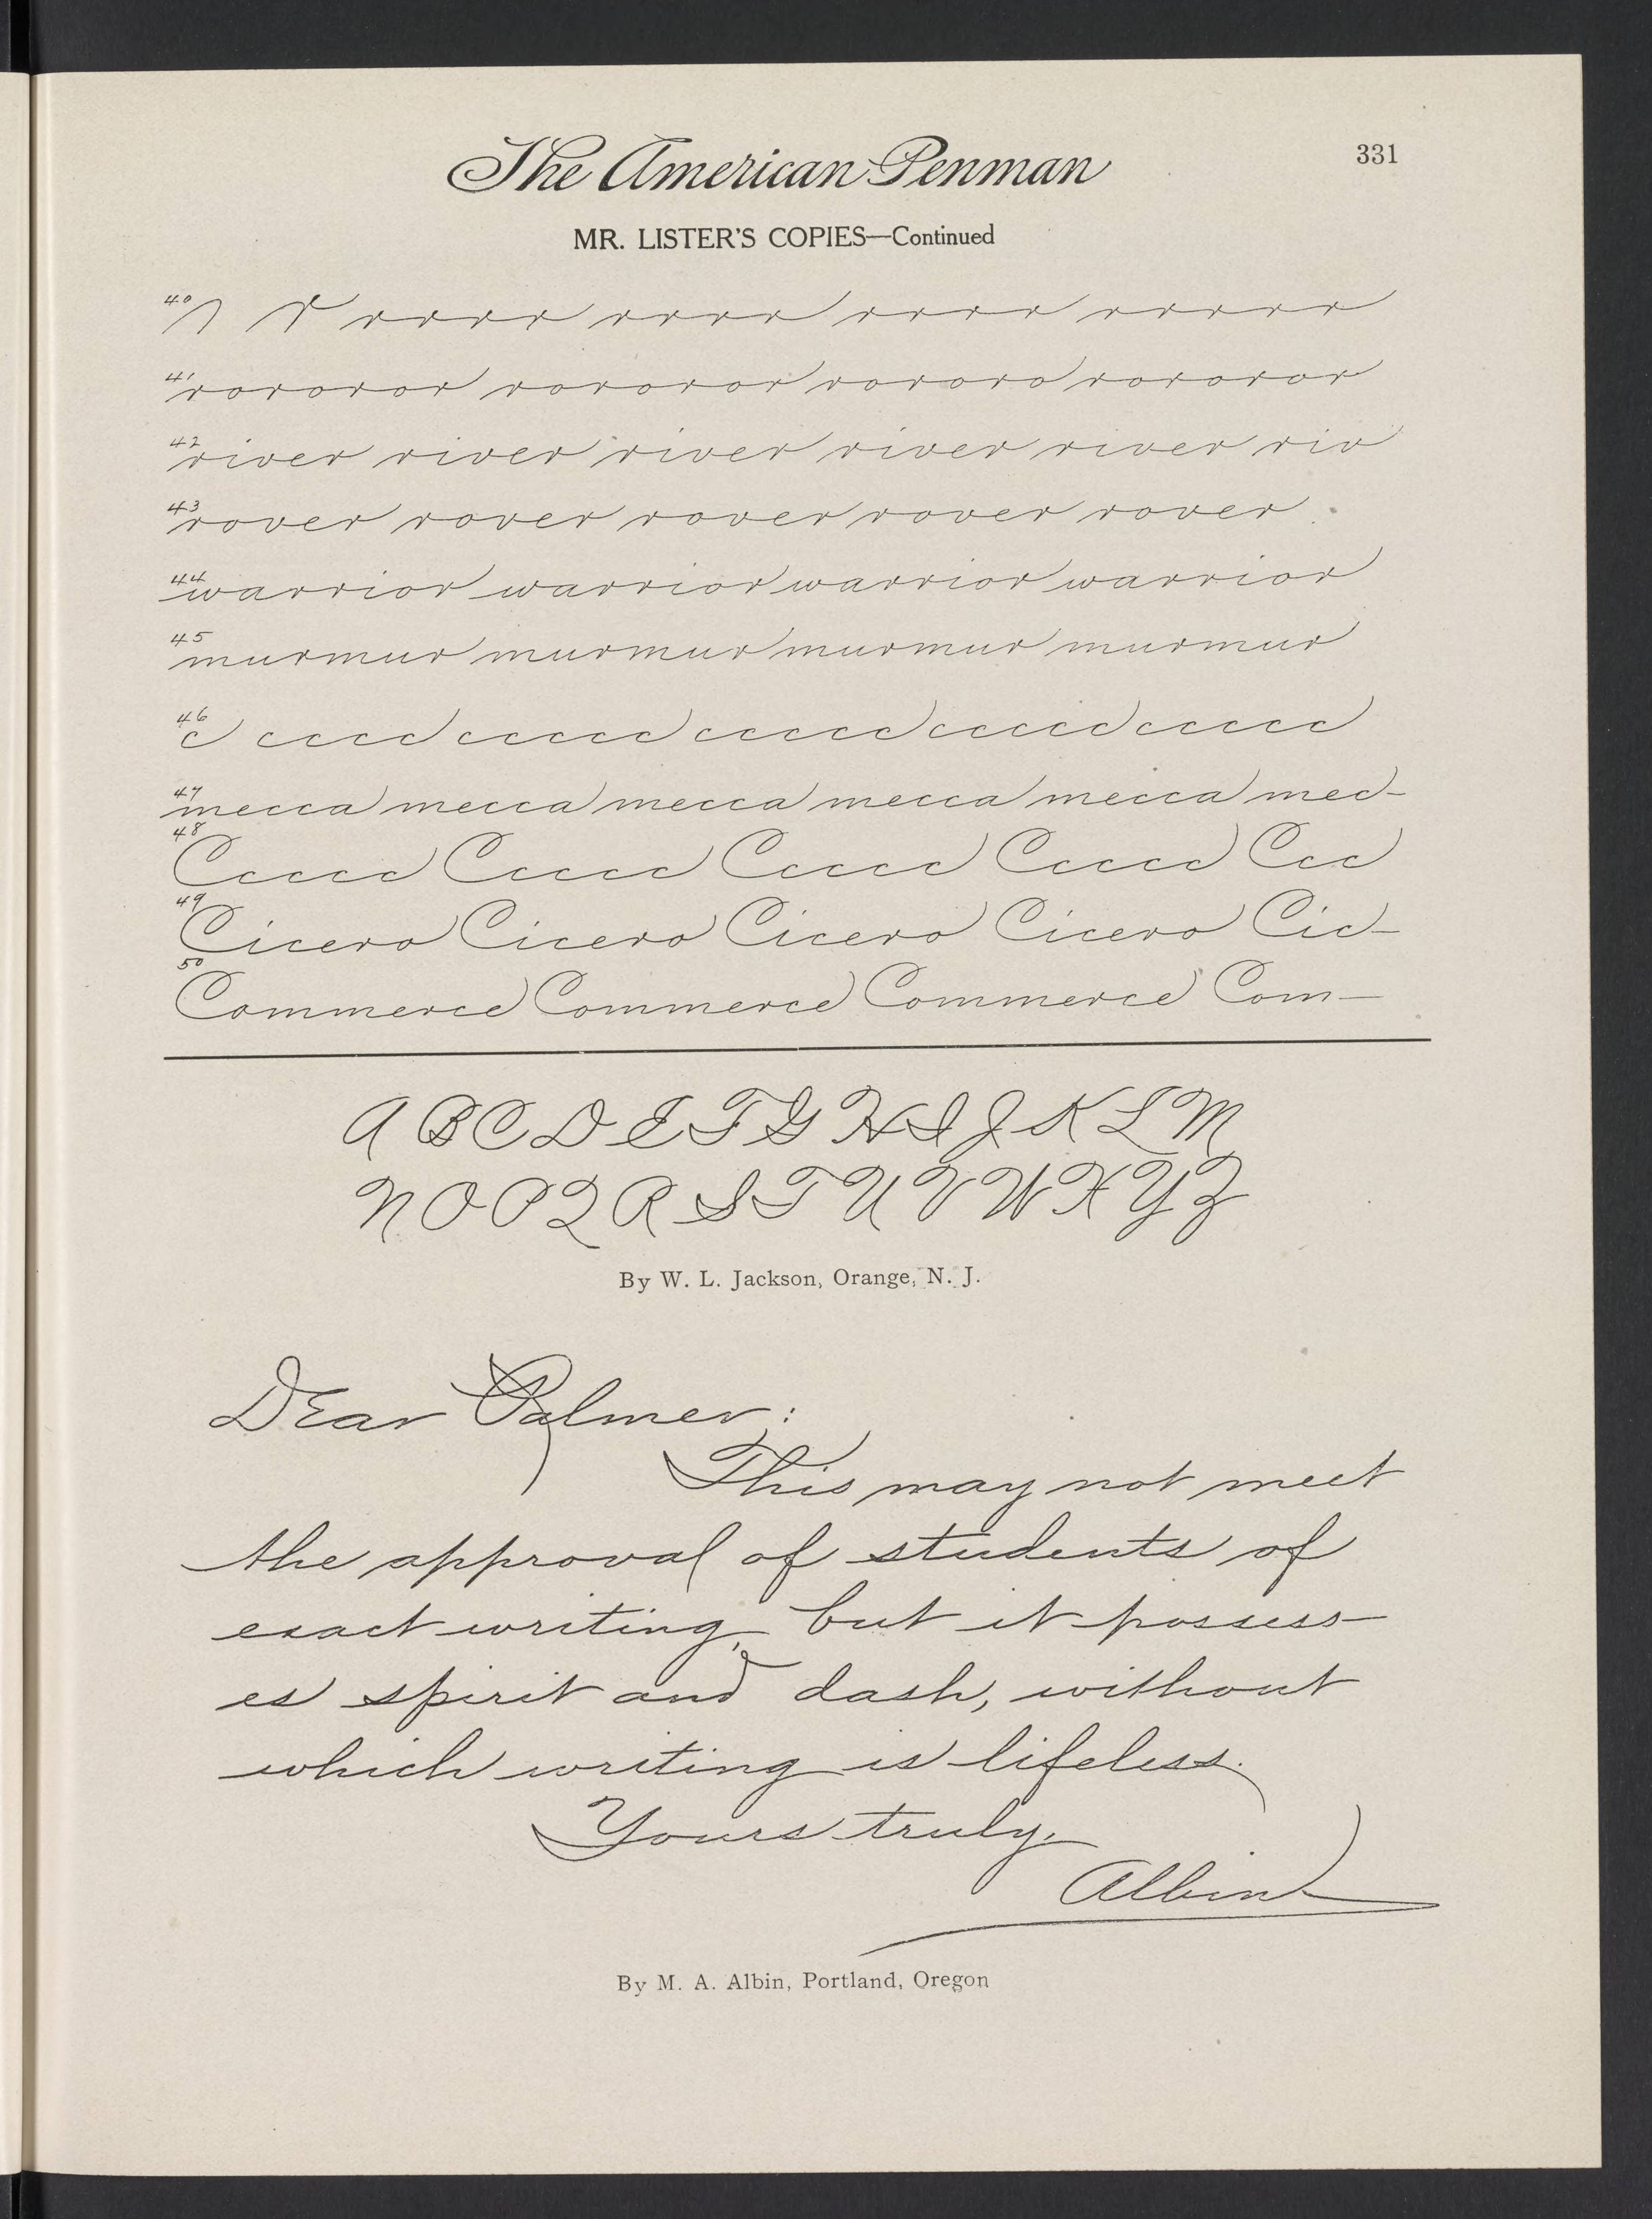 The American Penman
331
MR. LISTER'S COPIES—Continued
40 r rrrr rrrr rrrr rrrrr
41 rororor rororor rororo rororor
42 river river river river river riv
43 rover rover rover rover rover
44 warrior warrior warrior warrior
45 murmur murmur murmur murmur
46 c cccc ccccc ccccc ccccc ccccc
47 mecca mecca mecca mecca mecca mec-
48 Cccccc Cccccc Cccccc Cccccc Ccc
49 Cicero Cicero Cicero Cicero Cic-
50 Commerce Commerce Commerce Com-
A B C D E F G H I J K L M
N O P Q R S T U V W X Y Z
By W. L. Jackson, Orange, N. J.
Dear Palmer:
This may not meet
the approval of students of
exact writing, but it possess-
es spirit and dash, without
which writing is lifeless.
Yours truly,
Albin
By M. A. Albin, Portland, Oregon